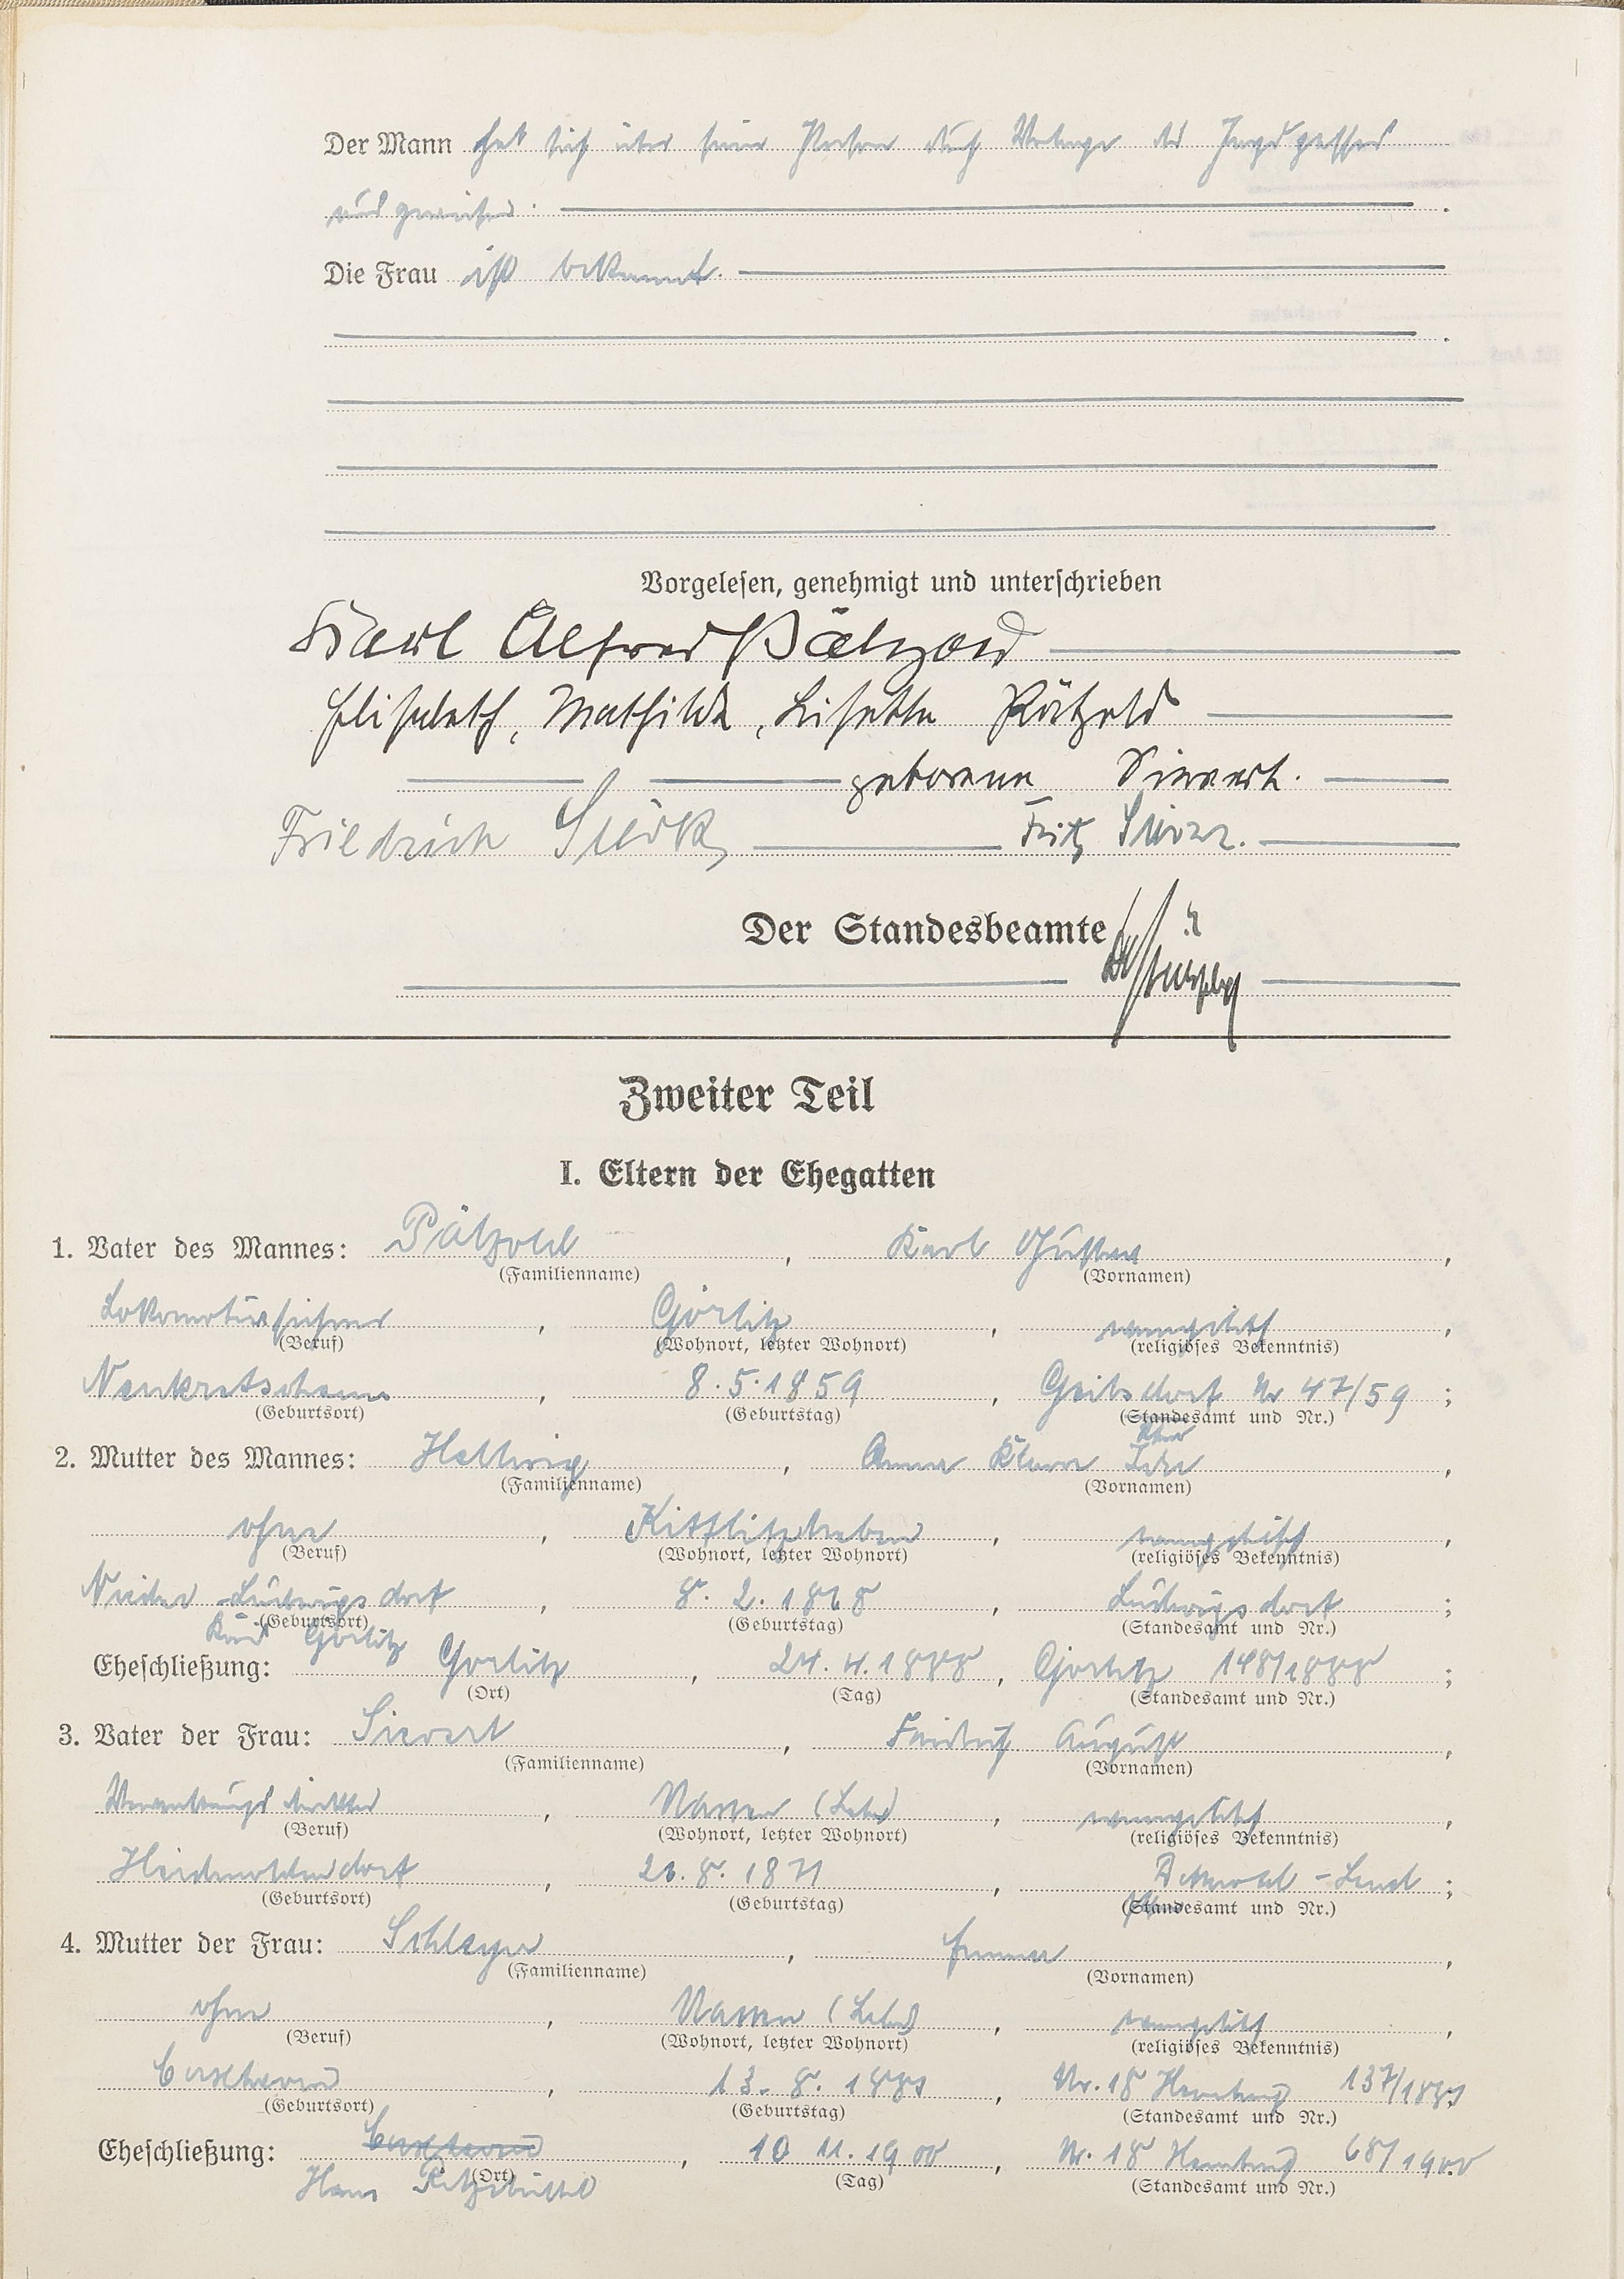 Der Mann hat sich über seine Person durch Vorlage des Jagdpasses
ausgewiesen.
Die Frau ist bekannt.
Vorgelesen, genehmigt und unterschrieben
Karl Alfred Pätzold
Elisabeth, Mathilde, Lisette Pätzold
geborene Sievert.
Friedrich Fritz
Der Standesbeamte
Zweiter Teil
I. Eltern der Ehegatten
1. Vater des Mannes: Pätzold, Karl Gustav,
(Familienname) (Vornamen)
Lokomotivführer, Görlitz, evangelisch,
(Beruf) (Wohnort, letzter Wohnort) (religiöses Bekenntnis)
Neukretscham, 8.5.1859, Nr 47/59;
(Geburtsort) (Geburtstag) (Standesamt und Nr.)
2. Mutter des Mannes: Hellwig, Anna Klara Ida,
(Familienname) (Vornamen)
ohne, Kittlitztreben, evangelisch,
(Beruf) (Wohnort, letzter Wohnort) (religiöses Bekenntnis)
Nieder-Ludwigsdorf, 8.2.1868, Ludwigsdorf;
(Geburtsort) (Geburtstag) (Standesamt und Nr.)
Görlitz
Eheschließung: Görlitz, 24.4.1888, Görlitz 148/1888;
(Ort) (Tag) (Standesamt und Nr.)
3. Vater der Frau: Sievert, Friedrich August,
(Familienname) (Vornamen)
Nassau (Lahn), evangelisch,
(Beruf) (Wohnort, letzter Wohnort) (religiöses Bekenntnis)
Heidenoldendorf, 26.8.1871, Detmold-Land;
(Geburtsort) (Geburtstag) (Standesamt und Nr.)
4. Mutter der Frau: Emma,
(Familienname) (Vornamen)
ohne, Nassau (Lahn), evangelisch,
(Beruf) (Wohnort, letzter Wohnort) (religiöses Bekenntnis)
Cuxhaven, 13.8., Nr. 18 Hamburg
(Geburtsort) (Geburtstag) (Standesamt und Nr.)
Eheschließung: Cuxhaven, 10.11.1900, Nr. 18 Hamburg 68/1900
(Ort) (Tag) (Standesamt und Nr.)
Ritzebüttel